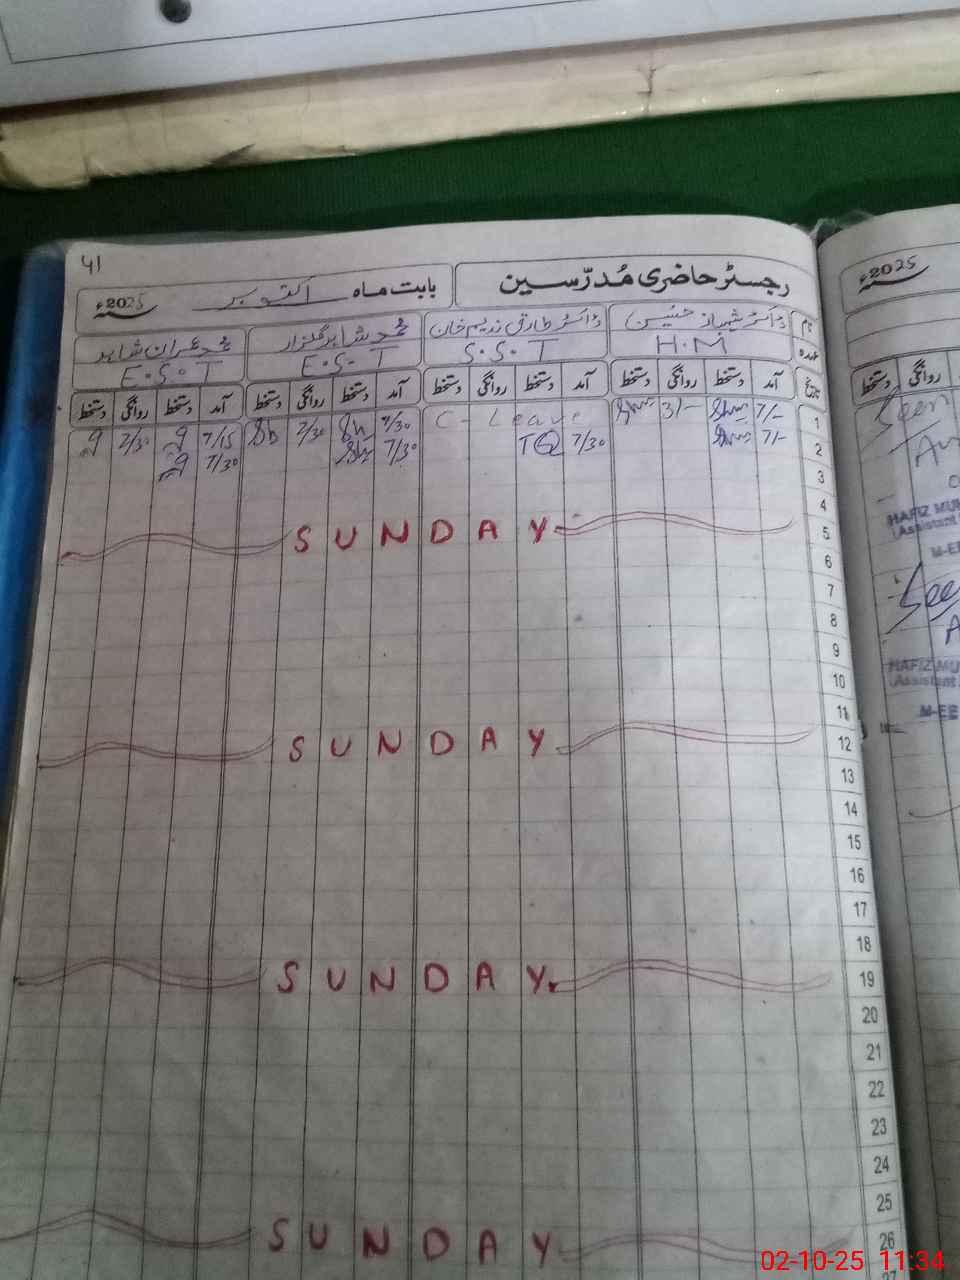 41
رجسٹر حاضری مُدرّسین
بابت ماہ اکتوبر 2025ء
نام ڈاکٹر شہباز حسین ڈاکٹر طارق ندیم خان محمد شاہد گلزار محمد عمران شاہد
عہدہ H.M S.S.T E.S.T E.S.T
تاریخ آمد دستخط روانگی دستخط آمد دستخط روانگی دستخط آمد دستخط روانگی دستخط آمد دستخط روانگی دستخط
1 7/- 3/- C - Leave 7/30 Sh 2/30 Sh 7/15 2/30
2 7/- 7/30 TQ 7/30 7/30
3
4
5 SUNDAY
6
7
8
9
10
11
12 SUNDAY
13
14
15
16
17
18
19 SUNDAY
20
21
22
23
24
25
26 SUNDAY
27
2025ء
دستخط روانگی
Seen
HAFIZ MU
(Assistant
M-EE
See
A
HAFIZ MU
(Assistant
M-EE
02-10-25 11:34